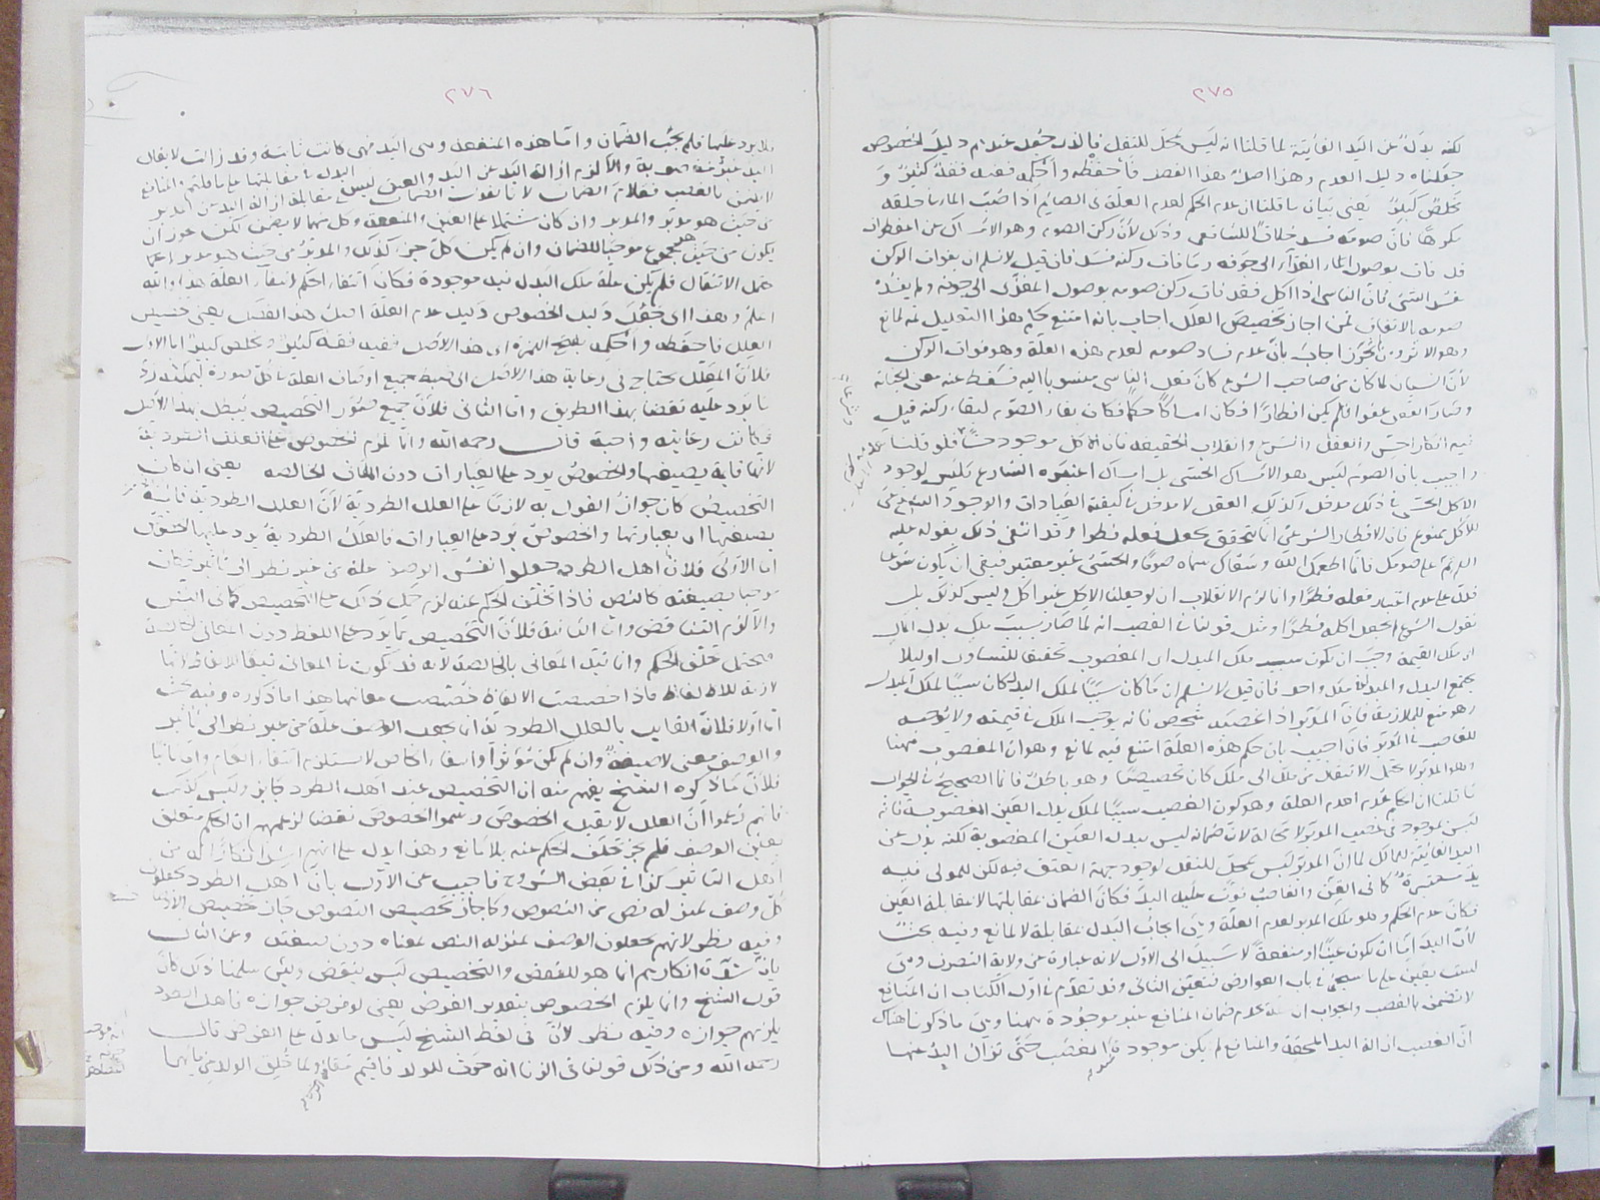 ٢٧٥
لكنه بدل عن اليد الفائتة لما قلنا انه ليس بمحل للنقل فالذي جعل عندهم دليل الخصوص
جعلناه دليل العدم وهذا اصل هذا الفصل فاحفظه واحكمه ففيه فقه كثير و
مخلص كبير يعنى بيان ما قلنا ان عدم الحكم لعدم العلة فى الصائم اذا صب الماء فى حلقه
مكرها فان صومه فسد خلافا للشافعى وذلك لان ركن الصوم وهو الامساك عن المفطرات
قد فات بوصول الماء الى جوفه وفات ركنه فسد فان قيل لا نسلم ان بفوات الركن
يفسد الشئ فان الناسى اذا اكل فقد فات ركن صومه بوصول المغذى الى جوفه ولم يفسد
صومه بالاتفاق فمن اجاز تخصيص العلل اجاب بانه امتنع حكم هذا التعليل ثمه لمانع
وهو الاثر ومن لم يجوز اجاب بان عدم فساد صومه لعدم هذه العلة وهو فوات الركن
لان النسيان لما كان من صاحب الشرع كان فعل الناسى منسوبا اليه فسقط عنه معنى الجناية
وصار الفعل عفوا فلم يكن افطارا فكان امساكا حكما فكان بقاء الصوم لبقاء ركنه قيل
فيه انكار الحس والعقل والشرع وانقلاب الحقيقة فان الاكل موجود حسا فلو قلنا
واجيب بان الصوم ليس هو الامساك الحسى بل امساك اعتبره الشارع فليس لوجود
الاكل الحسى فى ذلك مدخل وكذلك العقل لا مدخل له فى كيفية العبادات والوجود الشرعى
للاكل ممنوع فان الافطار الشرعى انما يتحقق بجعل فعله فطرا وقد انتفى ذلك بقوله عليه
السلم تم على صومك فانما اطعمك الله وسقاك سماه صوما والحسى غير معتبر فبقى ان يكون شرعيا
فدل على عدم اعتبار فعله فطرا وانما لزم الانقلاب ان لو جعلنا الاكل غير اكل وليس كذلك بل
نقول الشرع لم يجعل اكله فطرا ومثل قولنا فى الغصب انه لما صار سبب ملك بدل المال
اى ملك القيمة وجب ان يكون سبب ملك المبدل اى المغصوب تحقيقا للتساوى اولئلا
يجتمع البدل والمبدل فى ملك واحد فان قيل لا نسلم ان ما كان سببا لملك البدل كان سببا لملك المبدل
وهو منع للملازمة فان المدبر اذا غصبه شخص فانه يوجب الملك فى قيمته ولا يوجبه
للغاصب فى المدبر فان اجيب بان حكم هذه العلة امتنع فيه لمانع وهو ان المغصوب ههنا
وهو المدبر لا يحتمل الانتقال من ملك الى ملك كان تخصيصا وهو باطل فانما الصحيح فى الجواب
ما قلنا ان الحكم عدم لعدم العلة وهو كون الغصب سببا لملك بدل العين المغصوبة فانه
ليس بموجود فى غصب المدبر لا محالة لان ضمانه ليس ببدل العين المغصوبة لكنه بدل عن
اليد الفائتة للمالك لما ان المدبر ليس بمحل للنقل لوجود جهة العتق فيه لكن للمولى فيه
يد معتبرة كما فى القن والغاصب فوت عليه اليد فكان الضمان بمقابلتها لا بمقابلة العين
فكان عدم الحكم وهو ملك المدبر لعدم العلة وهى ايجاب البدل بمقابلة لا لمانع وفيه بحث
لان اليد اما ان تكون عينا او منفعة لا سبيل الى الاول لانه عبارة عن ولاية التصرف وهى
ليست بعين على ما سيجئ فى باب العوارض فتعين الثانى وقد تقدم فى اول الكتاب ان المنافع
لا تضمن بالغصب والجواب ان علة عدم ضمان المنافع غير موجودة ههنا وهى ما ذكرنا هناك
ان الغصب ازالة اليد المحقة والمنافع لم يكن موجودة فى الغصب حتى تزال اليد عنها
٢٧٦
فلا يرد عليها فلم يجب الضمان واما هذه المنفعة وهى اليد فهى كانت ثابتة وقد زالت لا يقال
اليد غير مغصوبة والا لزم ازالة اليد عن اليد والعين ليس
لا تضمن بالغصب فعلام الضمان لانا نقول الضمان
من حيث هو مدبر والمدبر وان كان شتملا على العين والمنفعة وكل منهما لا يضمن لكن يجوز ان
يكون من حيث هو مجموع موجبا للضمان وان لم يكن كل جزء كذلك والمدبر من حيث هو مدبر
يحتمل الانتقال فلم يكن علة ملك البدل فيه موجودة فكان انتفاء الحكم لانتفاء العلة هذا والله
اعلم وهذا اى جعل دليل الخصوص دليل عدم العلة اصل هذا الفصل يعنى تخصيص
العلل فاحفظه واحكمه بفتح الهمزة اى هذا الاصل ففيه فقه كثير ومخلص كبير اما الاول
فلان المعلل يحتاج فى رعاية هذا الاصل الى ضبط جميع اوصاف العلة فى كل صورة ليمكنه رد
ما يرد عليه نقضا بهذا الطريق واما الثانى فلان جميع صور التخصيص تبطل بهذا الاصل
فكانت رعايته واجبة قال رحمه الله وانما لزم الخصوص على العلل الطردية
لانها قائمة بصيغها والخصوص يرد على العبارات دون المعانى الخالصة يعنى ان كان
التخصيص كان جواز القول به لازما على العلل الطردية لان العلل الطردية قائمة
بصيغها اى بعبارتها والخصوص يرد على العبارات فالعلل الطردية يرد عليها الخصوص
اما الاولى فلان اهل الطرد جعلوا نفس الوصف علة من غير نظر الى تأثير فكان
موجبا بصيغته كالنص فاذا تخلف الحكم عنه لزم حمل ذلك على التخصيص كما فى النص
والا لزم التناقض واما الثانية فلان التخصيص مما يرد على اللفظ دون المعانى الخالصة
يحتمل تخلف الحكم وانما قيد المعانى بالخالصة لانه قد يكون فى المعانى تبعا للالفاظ لانها
لازمة للالفاظ فاذا خصصت الالفاظ خصصت معانيها هذا ما ذكروه وفيه بحث
اما اولا فلان القائل بالعلل الطردية انما يجعل الوصف علة من غير نظر الى تأثير
والوصف معنى لا صيغة وان لم يكن مؤثرا وانتفاء الخاص لا يستلزم انتفاء العام واما ثانيا
فلان ما ذكره الشيخ يفهم منه ان التخصيص عند اهل الطرد جائز وليس كذلك
فانهم زعموا ان العلل لا تقبل الخصوص وسموا الخصوص نقضا لزعمهم ان الحكم متعلق
بعين الوصف فلم يجز تخلف الحكم عنه بلا مانع وهذا يدل على انهم اشد انكارا له من
اهل التأثير كذا فى بعض الشروح فاجيب عن الاول بان اهل الطرد يجعلون
كل وصف بمنزلة نص من النصوص وكما جاز تخصيص النصوص جاز تخصيص الاوصاف
وفيه نظر لانهم يجعلون الوصف بمنزلة النص بمعناه دون صيغته وعن الثانى
بان شدة انكارهم انما هو للنقض والتخصيص ليس بنقض ولئن سلمنا ذلك كان
قول الشيخ وانما يلزم الخصوص بتقدير الفرض يعنى لو فرض جوازه فاهل الطرد
يلزمهم جوازه وفيه نظر لان فى لفظ الشيخ ليس ما يدل على الفرض قال
رحمه الله ومن ذلك قولنا فى الزنا انه حرث للولد فاقيم مقامه ولما خلق الولد من مائهما